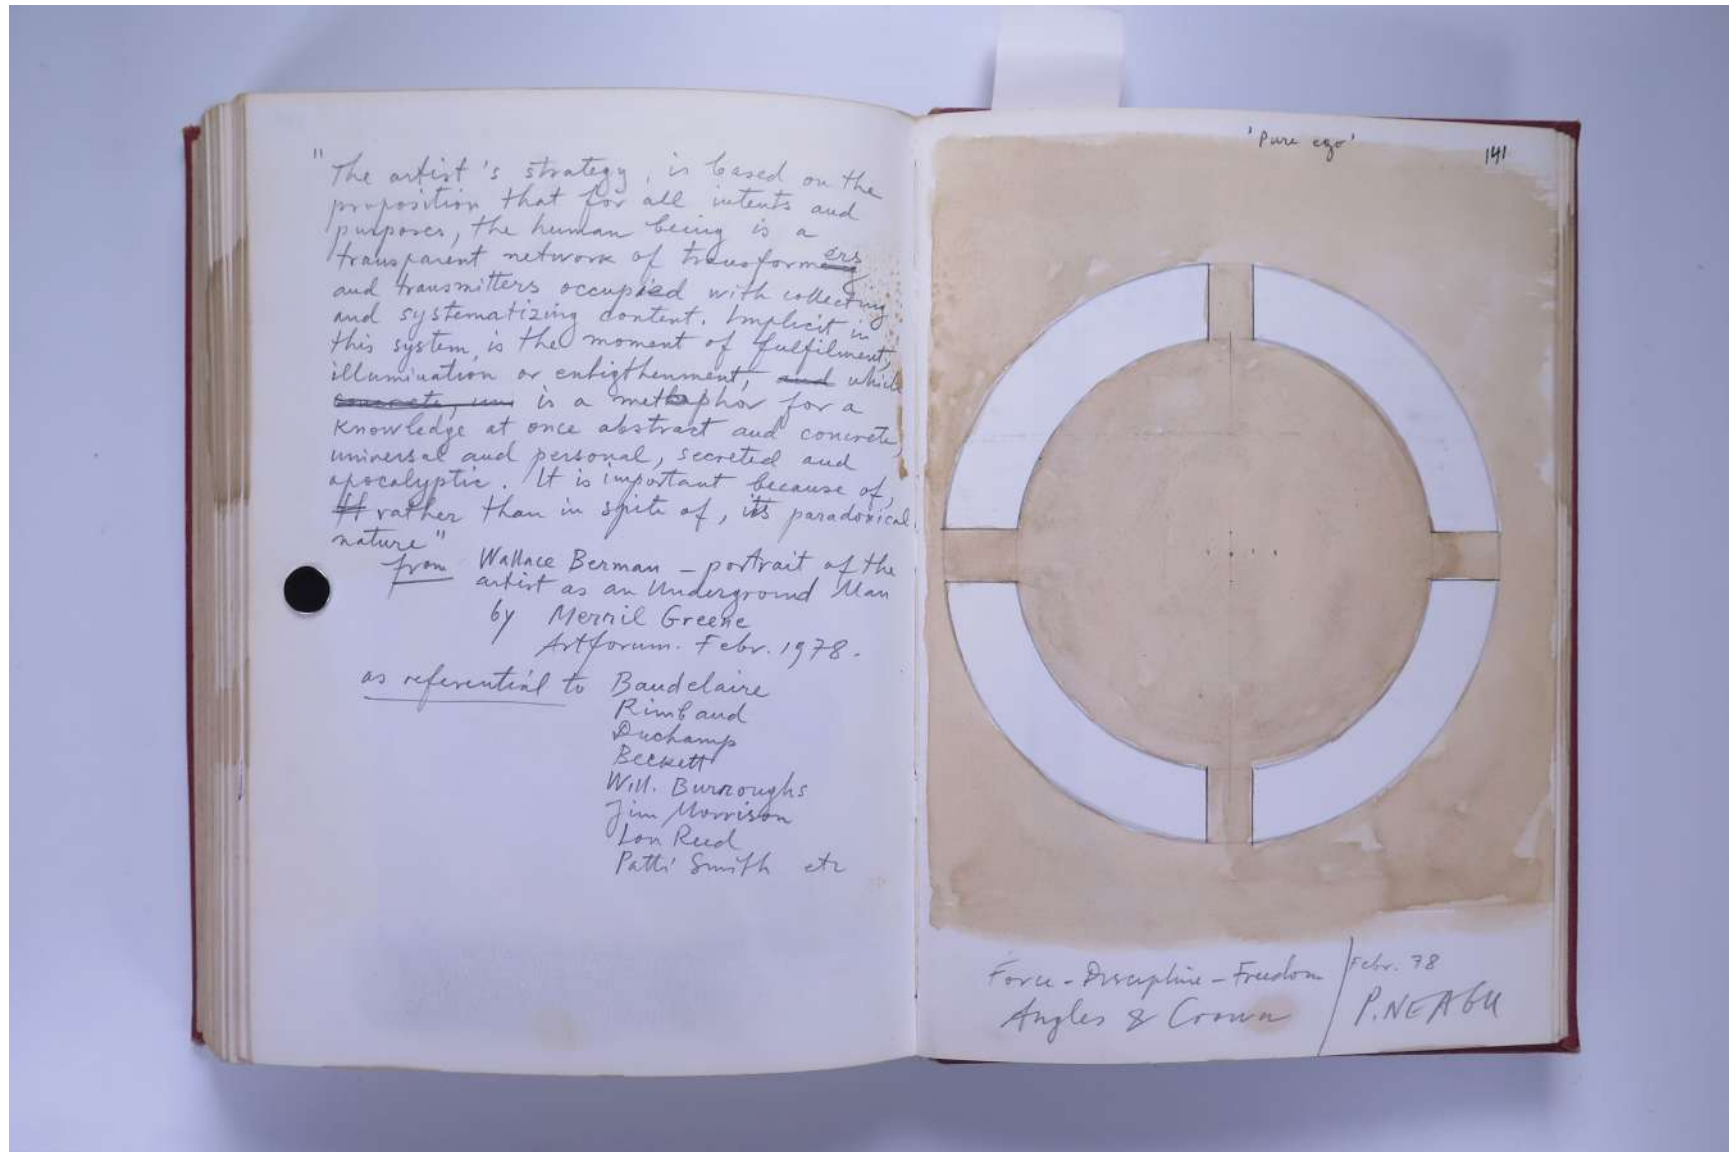 "The artist's strategy, is based on the
proposition that for all intents and
purposes, the human being is a
transparent network of transformers
and transmitters occupied with collecting
and systematizing content. Implicit in
this system, is the moment of fulfilment,
illumination or enligthenment, and which
concrete, is a metaphor for a
knowledge at once abstract and concrete,
universal and personal, secreted and
apocalyptic. It is important because of,
It rather than in spite of, its paradoxical
nature"
from Wallace Berman – portrait of the
artist as an Underground Man
by Merril Greene
Artforum. Febr. 1978.
as referential to Baudelaire
Rimbaud
Duchamp
Beckett
Will. Burroughs
Jim Morrison
Lou Reed
Patti Smith etc
'Pure ego'
141
Force – Discipline – Freedom
Angles & Crown
Febr. 78
P. NEAGU